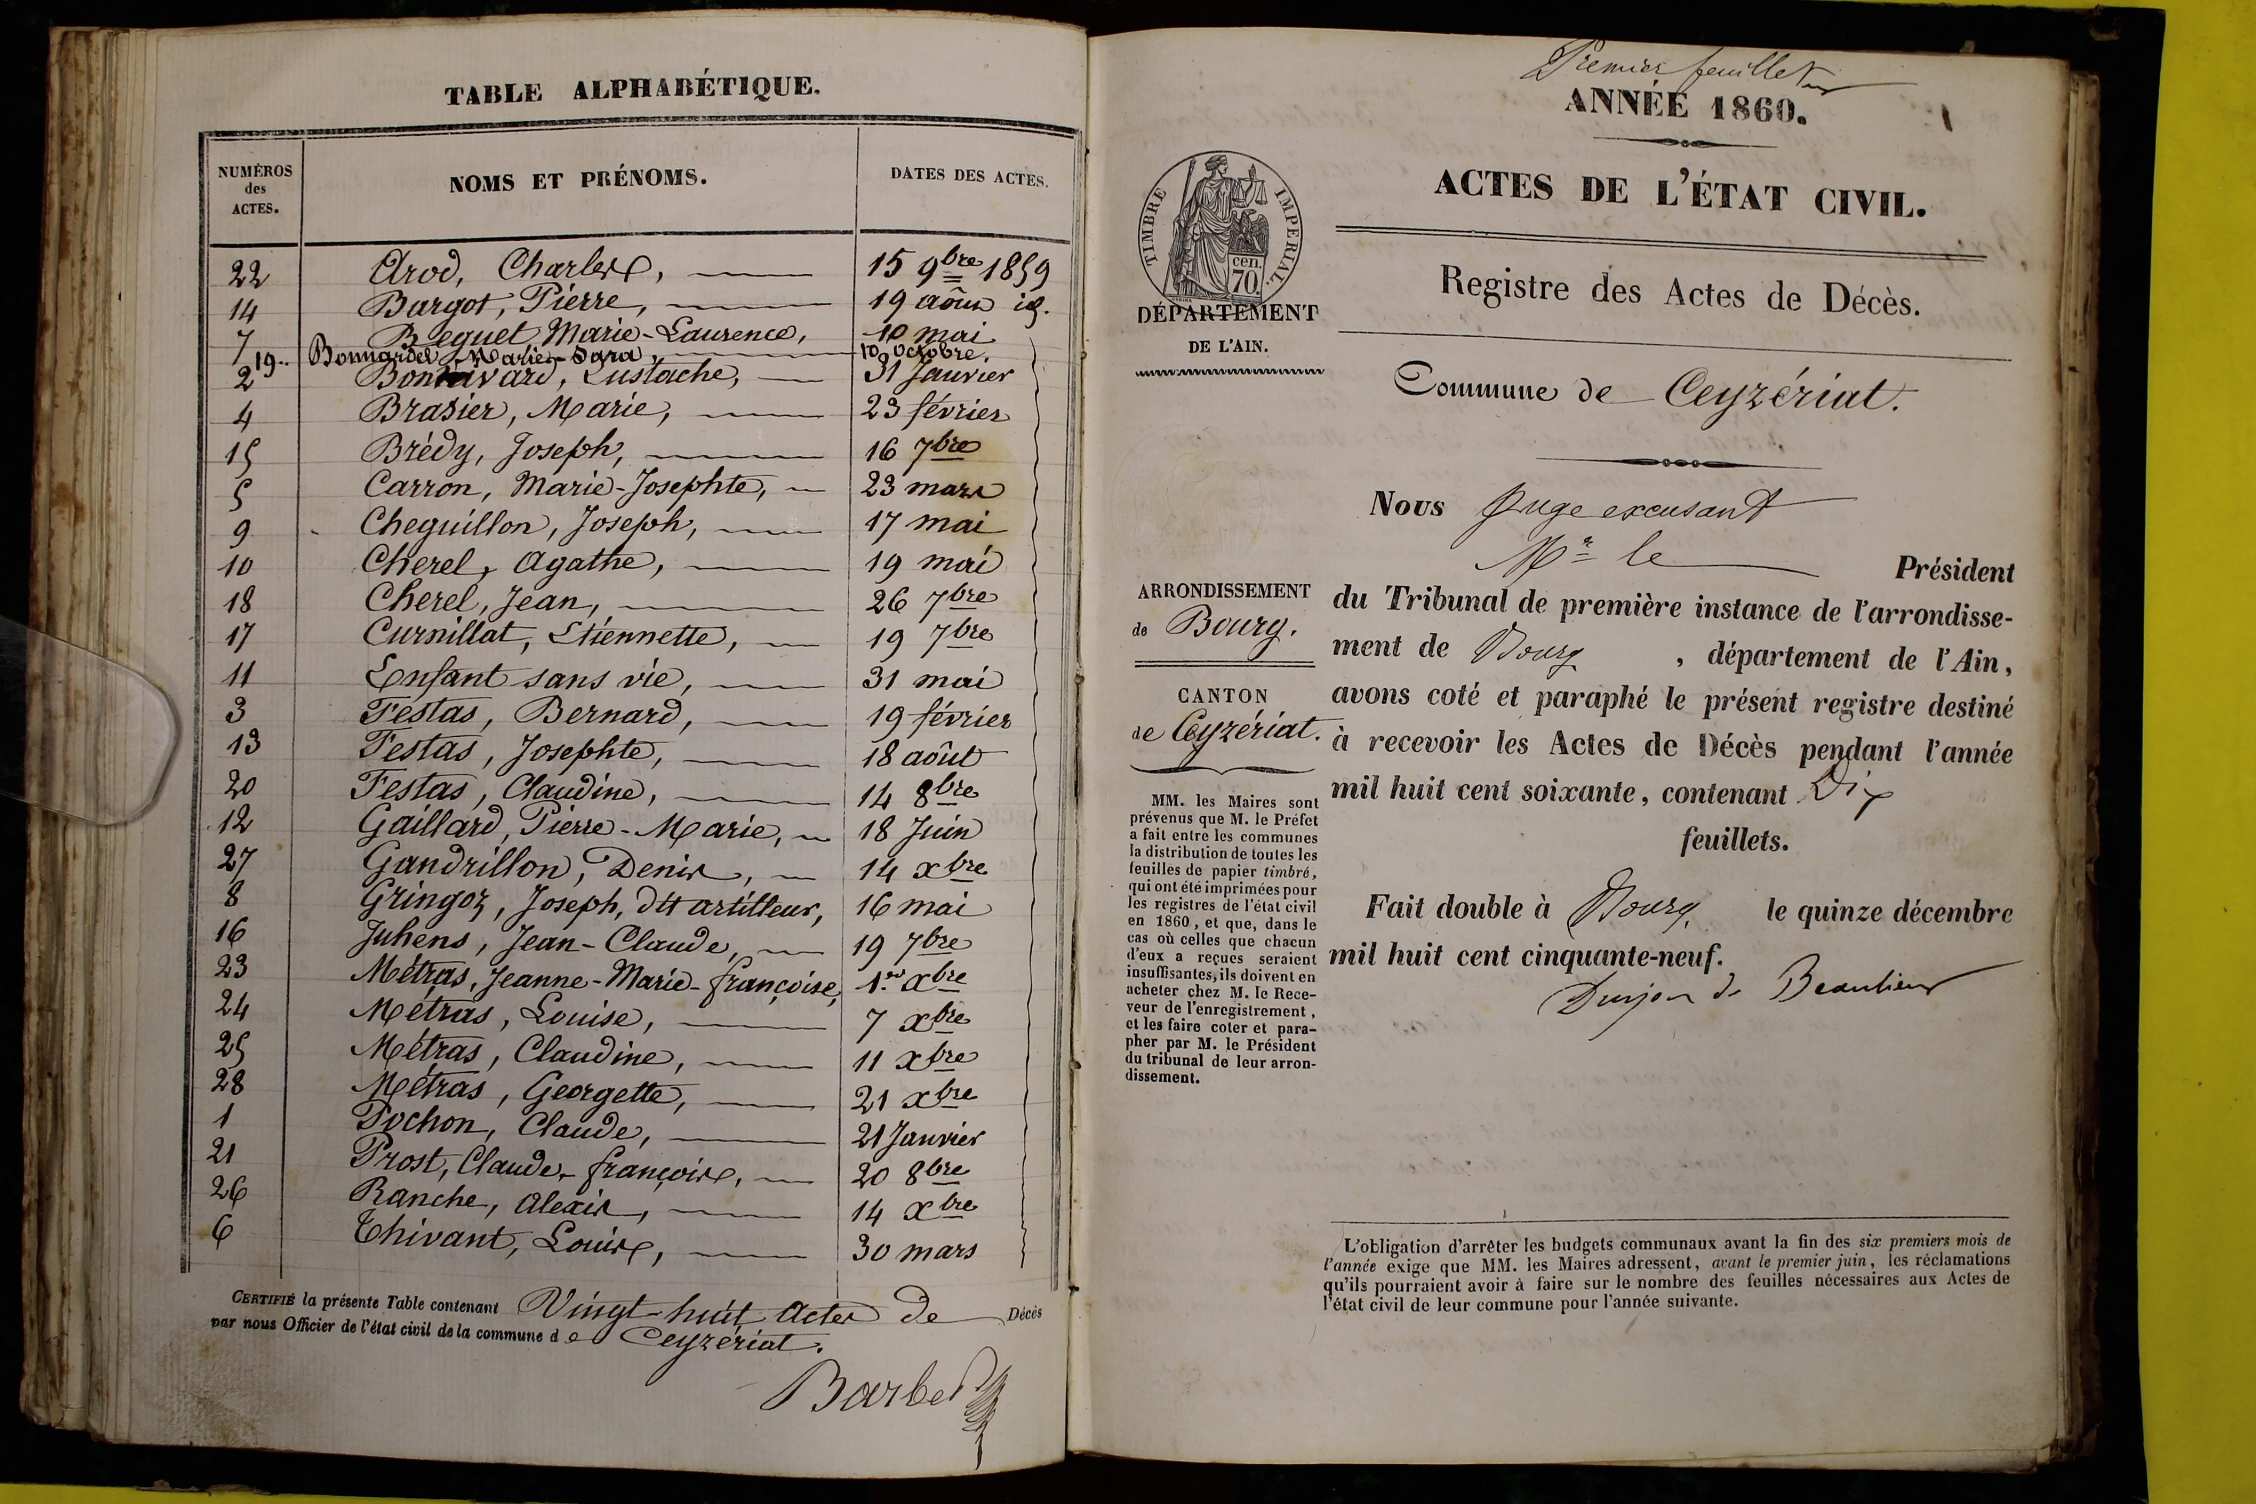 TABLE ALPHABÉTIQUE.
NUMÉROS des ACTES.
NOMS ET PRÉNOMS.
DATES DES ACTES.
22 Arod, Charles, 15 9bre 1859
14 Bargot, Pierre, 19 août id.
7 Beguet, Marie-Laurence, 10 mai
19 Bonnardel, Marie-Sara, 10 octobre.
2 Bonnivard, Eustache, 31 Janvier
4 Brasier, Marie, 23 février
15 Brédy, Joseph, 16 7bre
5 Carron, Marie-Josephte, 23 mars
9 Cheguillon, Joseph, 17 mai
10 Cherel, Agathe, 19 mai
18 Cherel, Jean, 26 7bre
17 Curnillat, Etiennette, 19 7bre
11 Enfant sans vie, 31 mai
3 Festas, Bernard, 19 février
13 Festas, Josephte, 18 août
20 Festas, Claudine, 14 8bre
12 Gaillard, Pierre-Marie, 18 Juin
27 Gandrillon, Denis, 14 xbre
8 Gringoz, Joseph, dit artilleur, 16 mai
16 Juhens, Jean-Claude, 19 7bre
23 Métras, Jeanne-Marie-françoise, 1er xbre
24 Métras, Louise, 7 xbre
25 Métras, Claudine, 11 xbre
28 Métras, Georgette, 21 xbre
1 Pochon, Claude, 21 Janvier
21 Prost, Claude-françois, 20 8bre
26 Ranche, Alexis, 14 xbre
6 Thivant, Louise, 30 mars
CERTIFIÉ la présente Table contenant Vingt-huit Actes de Décès
par nous Officier de l'état civil de la commune de Ceyzériat.
Barbet
Premier feuillet
ANNÉE 1860.
1
ACTES DE L'ÉTAT CIVIL.
TIMBRE IMPERIAL.
cen.
70.
DÉPARTEMENT
DE L'AIN.
Registre des Actes de Décès.
Commune de Ceyzériat.
ARRONDISSEMENT
de Bourg.
CANTON
de Ceyzériat.
MM. les Maires sont
prévenus que M. le Préfet
a fait entre les communes
la distribution de toutes les
feuilles de papier timbré,
qui ont été imprimées pour
les registres de l'état civil
en 1860, et que, dans le
cas où celles que chacun
d'eux a reçues seraient
insuffisantes, ils doivent en
acheter chez M. le Rece-
veur de l'enregistrement,
et les faire coter et para-
pher par M. le Président
du tribunal de leur arron-
dissement.
Nous Juge excusant
Mr le Président
du Tribunal de première instance de l'arrondisse-
ment de Bourg, département de l'Ain,
avons coté et paraphé le présent registre destiné
à recevoir les Actes de Décès pendant l'année
mil huit cent soixante, contenant Dix
feuillets.
Fait double à Bourg, le quinze décembre
mil huit cent cinquante-neuf.
Dujon de Beaulieu
L'obligation d'arrêter les budgets communaux avant la fin des six premiers mois de
l'année exige que MM. les Maires adressent, avant le premier juin, les réclamations
qu'ils pourraient avoir à faire sur le nombre des feuilles nécessaires aux Actes de
l'état civil de leur commune pour l'année suivante.